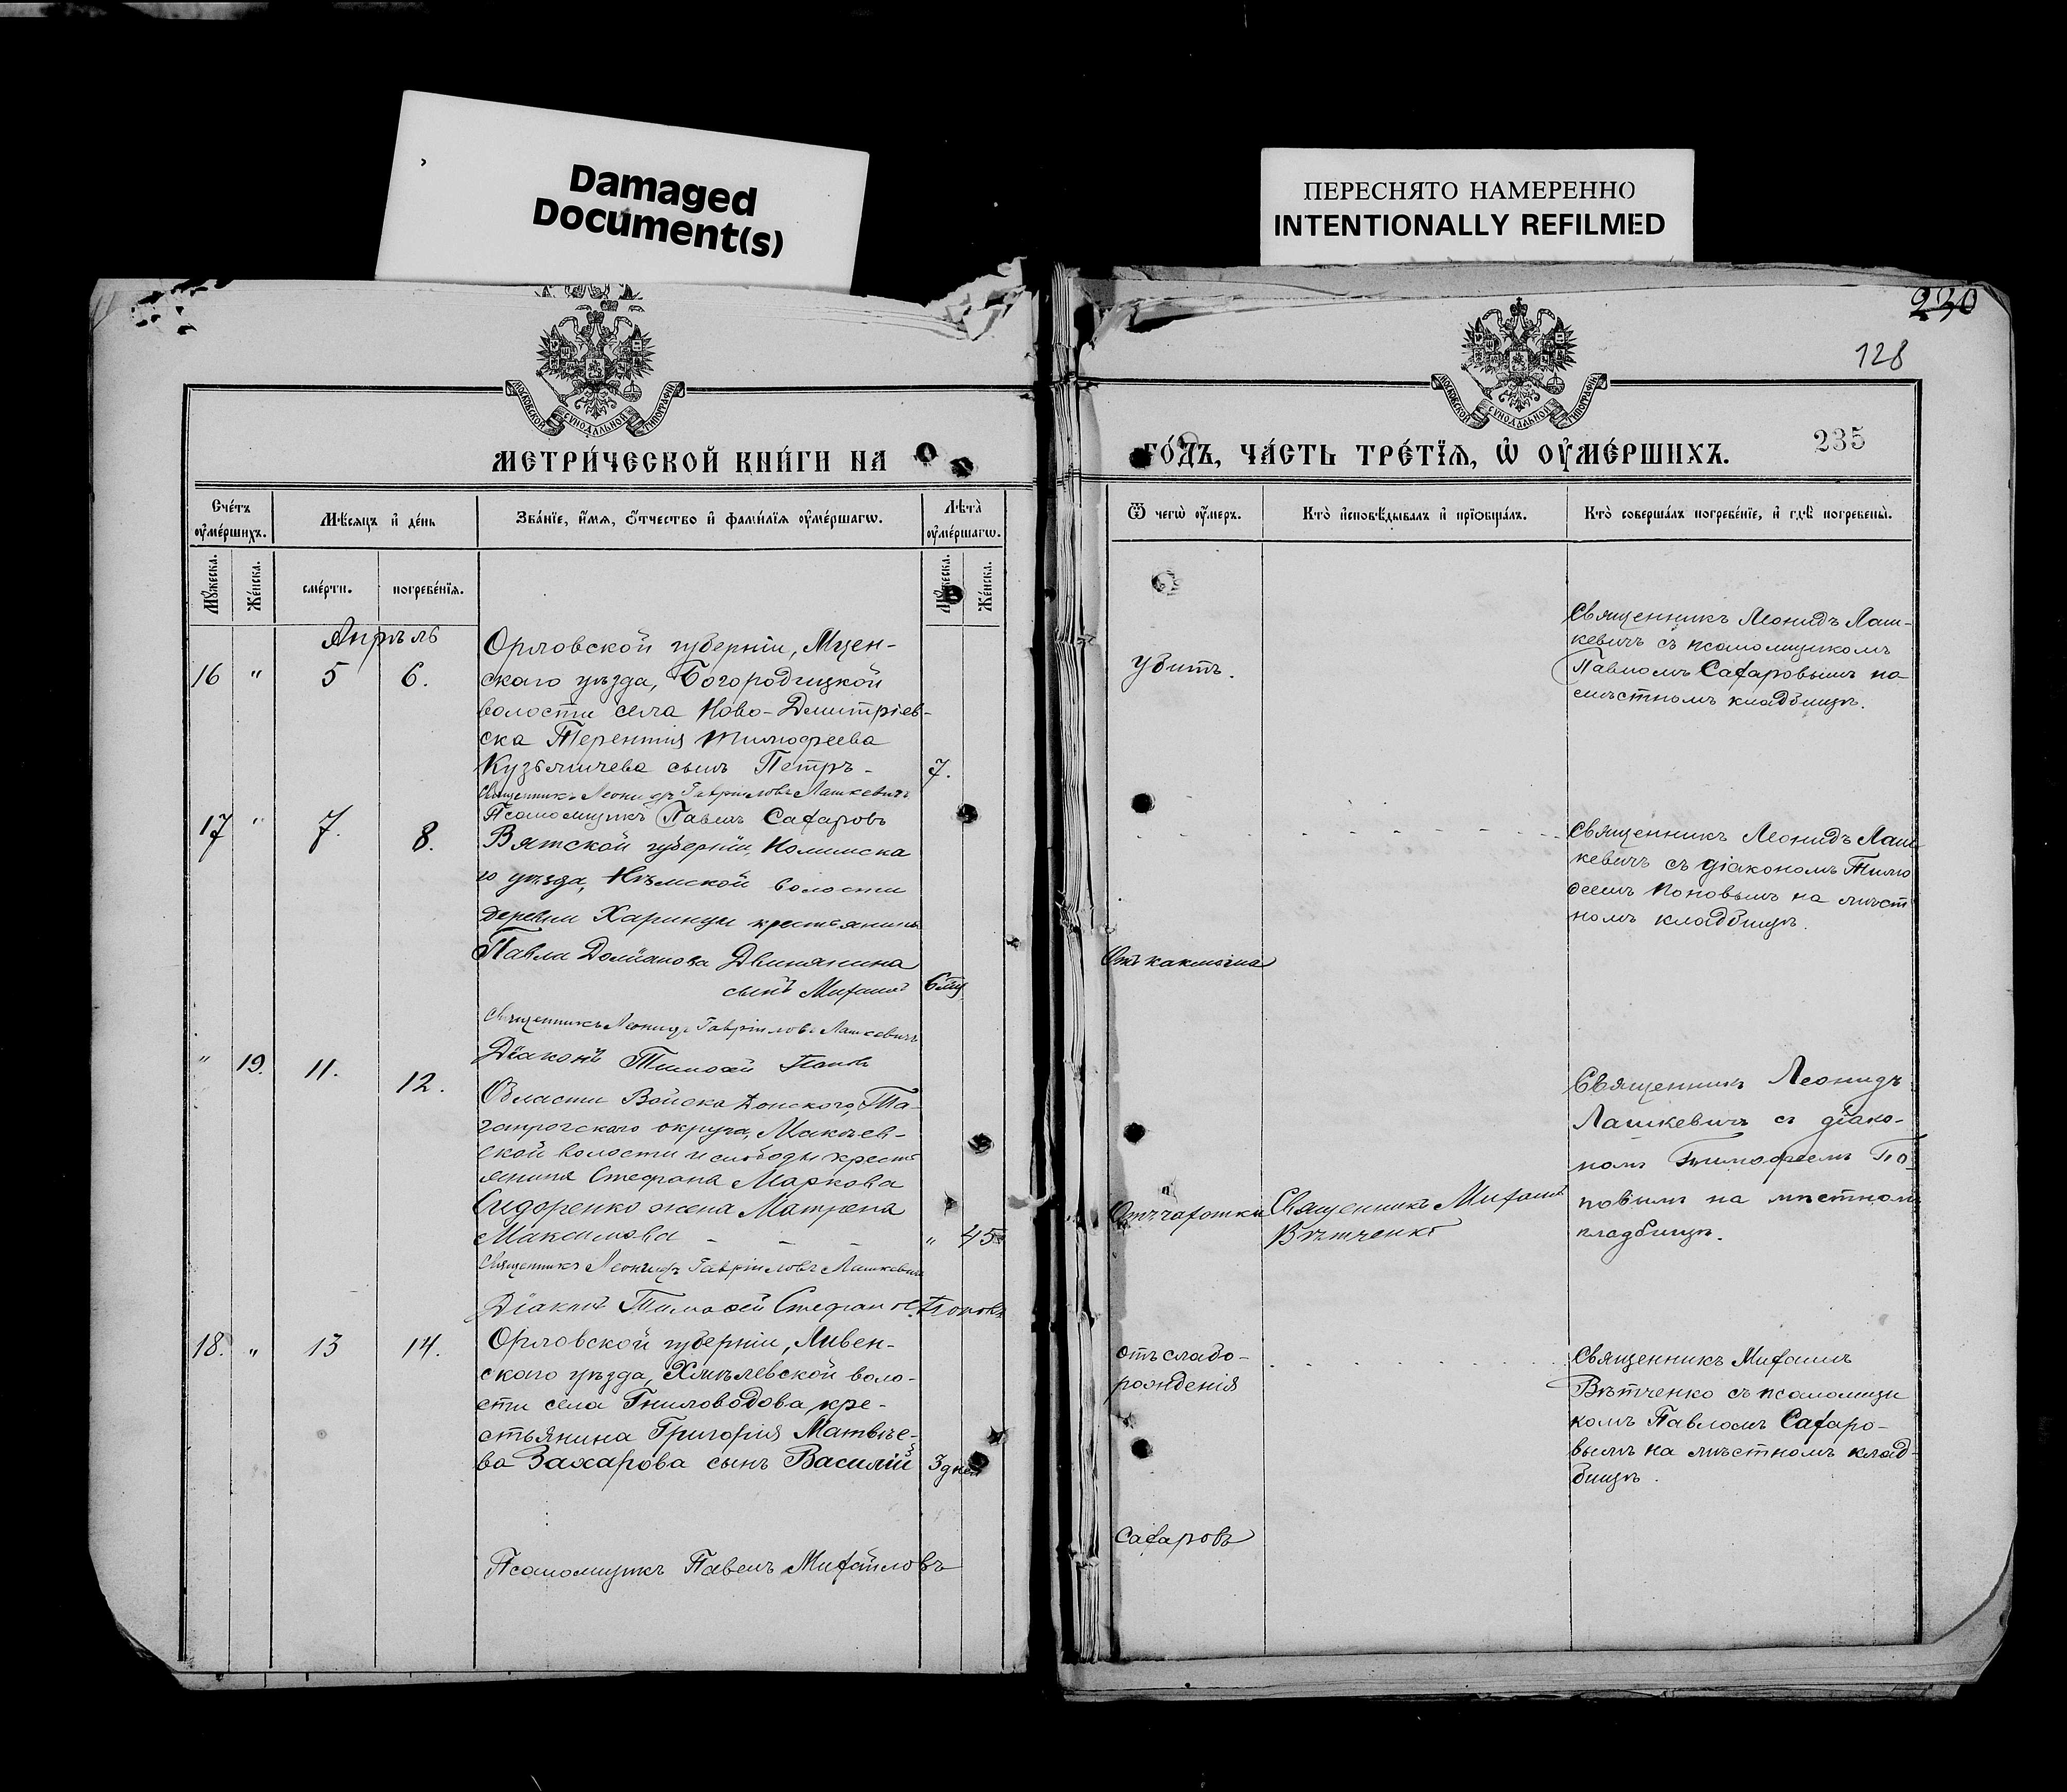 Damaged
Document(s)
ПЕРЕСНЯТО НАМЕРЕННО
INTENTIONALLY REFILMED
230
128
235
МОСКОВСКОЙ СУНОДАЛЬНОЙ ТИПОГРАФІИ
МОСКОВСКОЙ СУНОДАЛЬНОЙ ТИПОГРАФІИ
МЕТРИ́ЧЕСКОЙ КНИ́ГИ НА
ГО́ДЪ, ЧА́СТЬ ТРЕ́ТІѦ, Ѡ҆ ОУ҆МЕ́РШИХЪ.
Сче́тъ оу҆ме́ршихъ.
Мѣ́сяцъ и҆ де́нь
Зва́нїе, и҆́мя, ѻ҆́тчество и҆ фами́лїя оу҆ме́ршагѡ.
Лѣ́та̀ оу҆ме́ршагѡ.
Мꙋ́жеска.
Же́нска.
сме́рти.
погребе́нїя.
Мꙋ́жеска.
Же́нска.
Ѿ чегѡ̀ оу҆́меръ.
Кто̀ и҆сповѣ́дывалъ и҆ прїѻбща́лъ.
Кто̀ соверша́лъ погребе́нїе, и҆ гдѣ̀ погребены̀.
Апрѣль
16 " 5 6.
Орловской губерніи, Мцен-
скаго уѣзда, Богородицкой
волости села Ново-Дмитріев-
ска Терентія Тимофеева
Кузьмичева сынъ Петръ - 7.
Священникъ Леонидъ Гавріиловъ Лашкевичъ
Псаломщикъ Павелъ Сахаровъ
убитъ.
Священникъ Леонидъ Лаш-
кевичъ съ псаломщикомъ
Павломъ Сахаровымъ на
мѣстномъ кладбищѣ.
17 " 7. 8.
Вятской губерніи, Нолинска
го уѣзда, Нѣмской волости
деревни Харинцы крестьянина
Павла Двинянина
сынъ Михаилъ
Священникъ Леонидъ Гавріиловъ Лашкевичъ
Діаконъ Тимоѳей Поповъ
Священникъ Леонидъ Лаш
кевичъ съ діакономъ Тимо
ѳеемъ Поповымъ на мѣст
номъ кладбищѣ.
" 19. 11. 12.
Области Войска Донского, Та-
ганрогскаго округа, Макѣев-
ской волости и слободы крест
янина Стефана Маркова
Сидоренко жена Матрена
Максимова - - - " 45
Священникъ Леонидъ Гавріиловъ Лашкевичъ
Діаконъ Тимоѳей Стефанов. Поповъ
Отъ чахотки
Священникъ Михаилъ
Вѣтченко
Священникъ Леонидъ
Лашкевичъ съ діако-
номъ Тимофеемъ По-
повымъ на мѣстномъ
кладбищѣ.
18. " 13 14.
Орловской губерніи, Ливен-
скаго уѣзда, Хмѣлевской воло-
сти села Гниловодова, кре-
стьянина Григорія Матвѣе-
ва Захарова сынъ Василій 3 дней
отъ слабо-
рожденія
Священникъ Михаилъ
Вѣтченко съ псаломщи
комъ Павломъ Сахаро-
вымъ на мѣстномъ клад-
бищѣ.
Псаломщикъ Павелъ Михайловъ
Сахаровъ